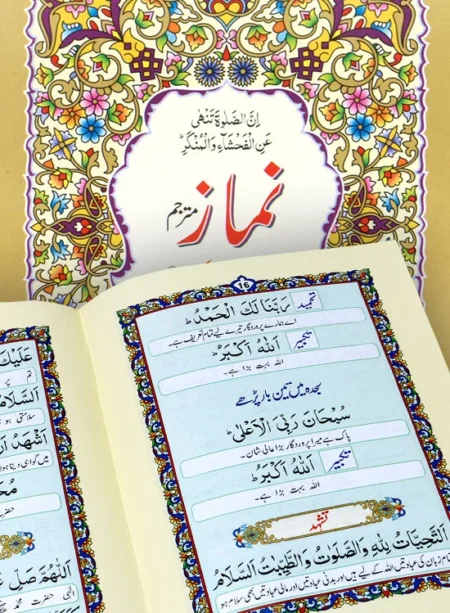 اِنَّ الصَّلٰوةَ تَنْهٰى
عَنِ الْفَحْشَآءِ وَالْمُنْكَرِ ؕ
نماز
مترجم
16
تحمید رَبَّنَا لَكَ الْحَمْدُ ؕ
اے ہمارے پروردگار تیرے لیے تمام تعریف ہے۔
تکبیر اَللّٰهُ اَكْبَرُ ؕ
اللہ بہت بڑا ہے۔
سجدہ میں تین بار پڑھے
سُبْحَانَ رَبِّیَ الْاَعْلٰی ؕ
پاک ہے میرا پروردگار بڑا عالی شان۔
تکبیر اَللّٰهُ اَكْبَرُ ؕ
اللہ بہت بڑا ہے۔
تشہد
اَلتَّحِيَّاتُ لِلّٰهِ وَالصَّلَوٰتُ وَالطَّيِّبٰتُ اَلسَّلَامُ
تمام زبان کی عبادتیں اللہ کے لیے ہیں اور بدنی عبادتیں اور مالی عبادتیں بھی سلام ہو
عَلَيْكَ
تم پر
اَلسَّلَامُ
سلامتی ہو
اَشْهَدُ اَنْ
میں گواہی دیتا ہوں
حضرت
اَللّٰهُمَّ صَلِّ عَلٰی
الٰہی حضرت محمد